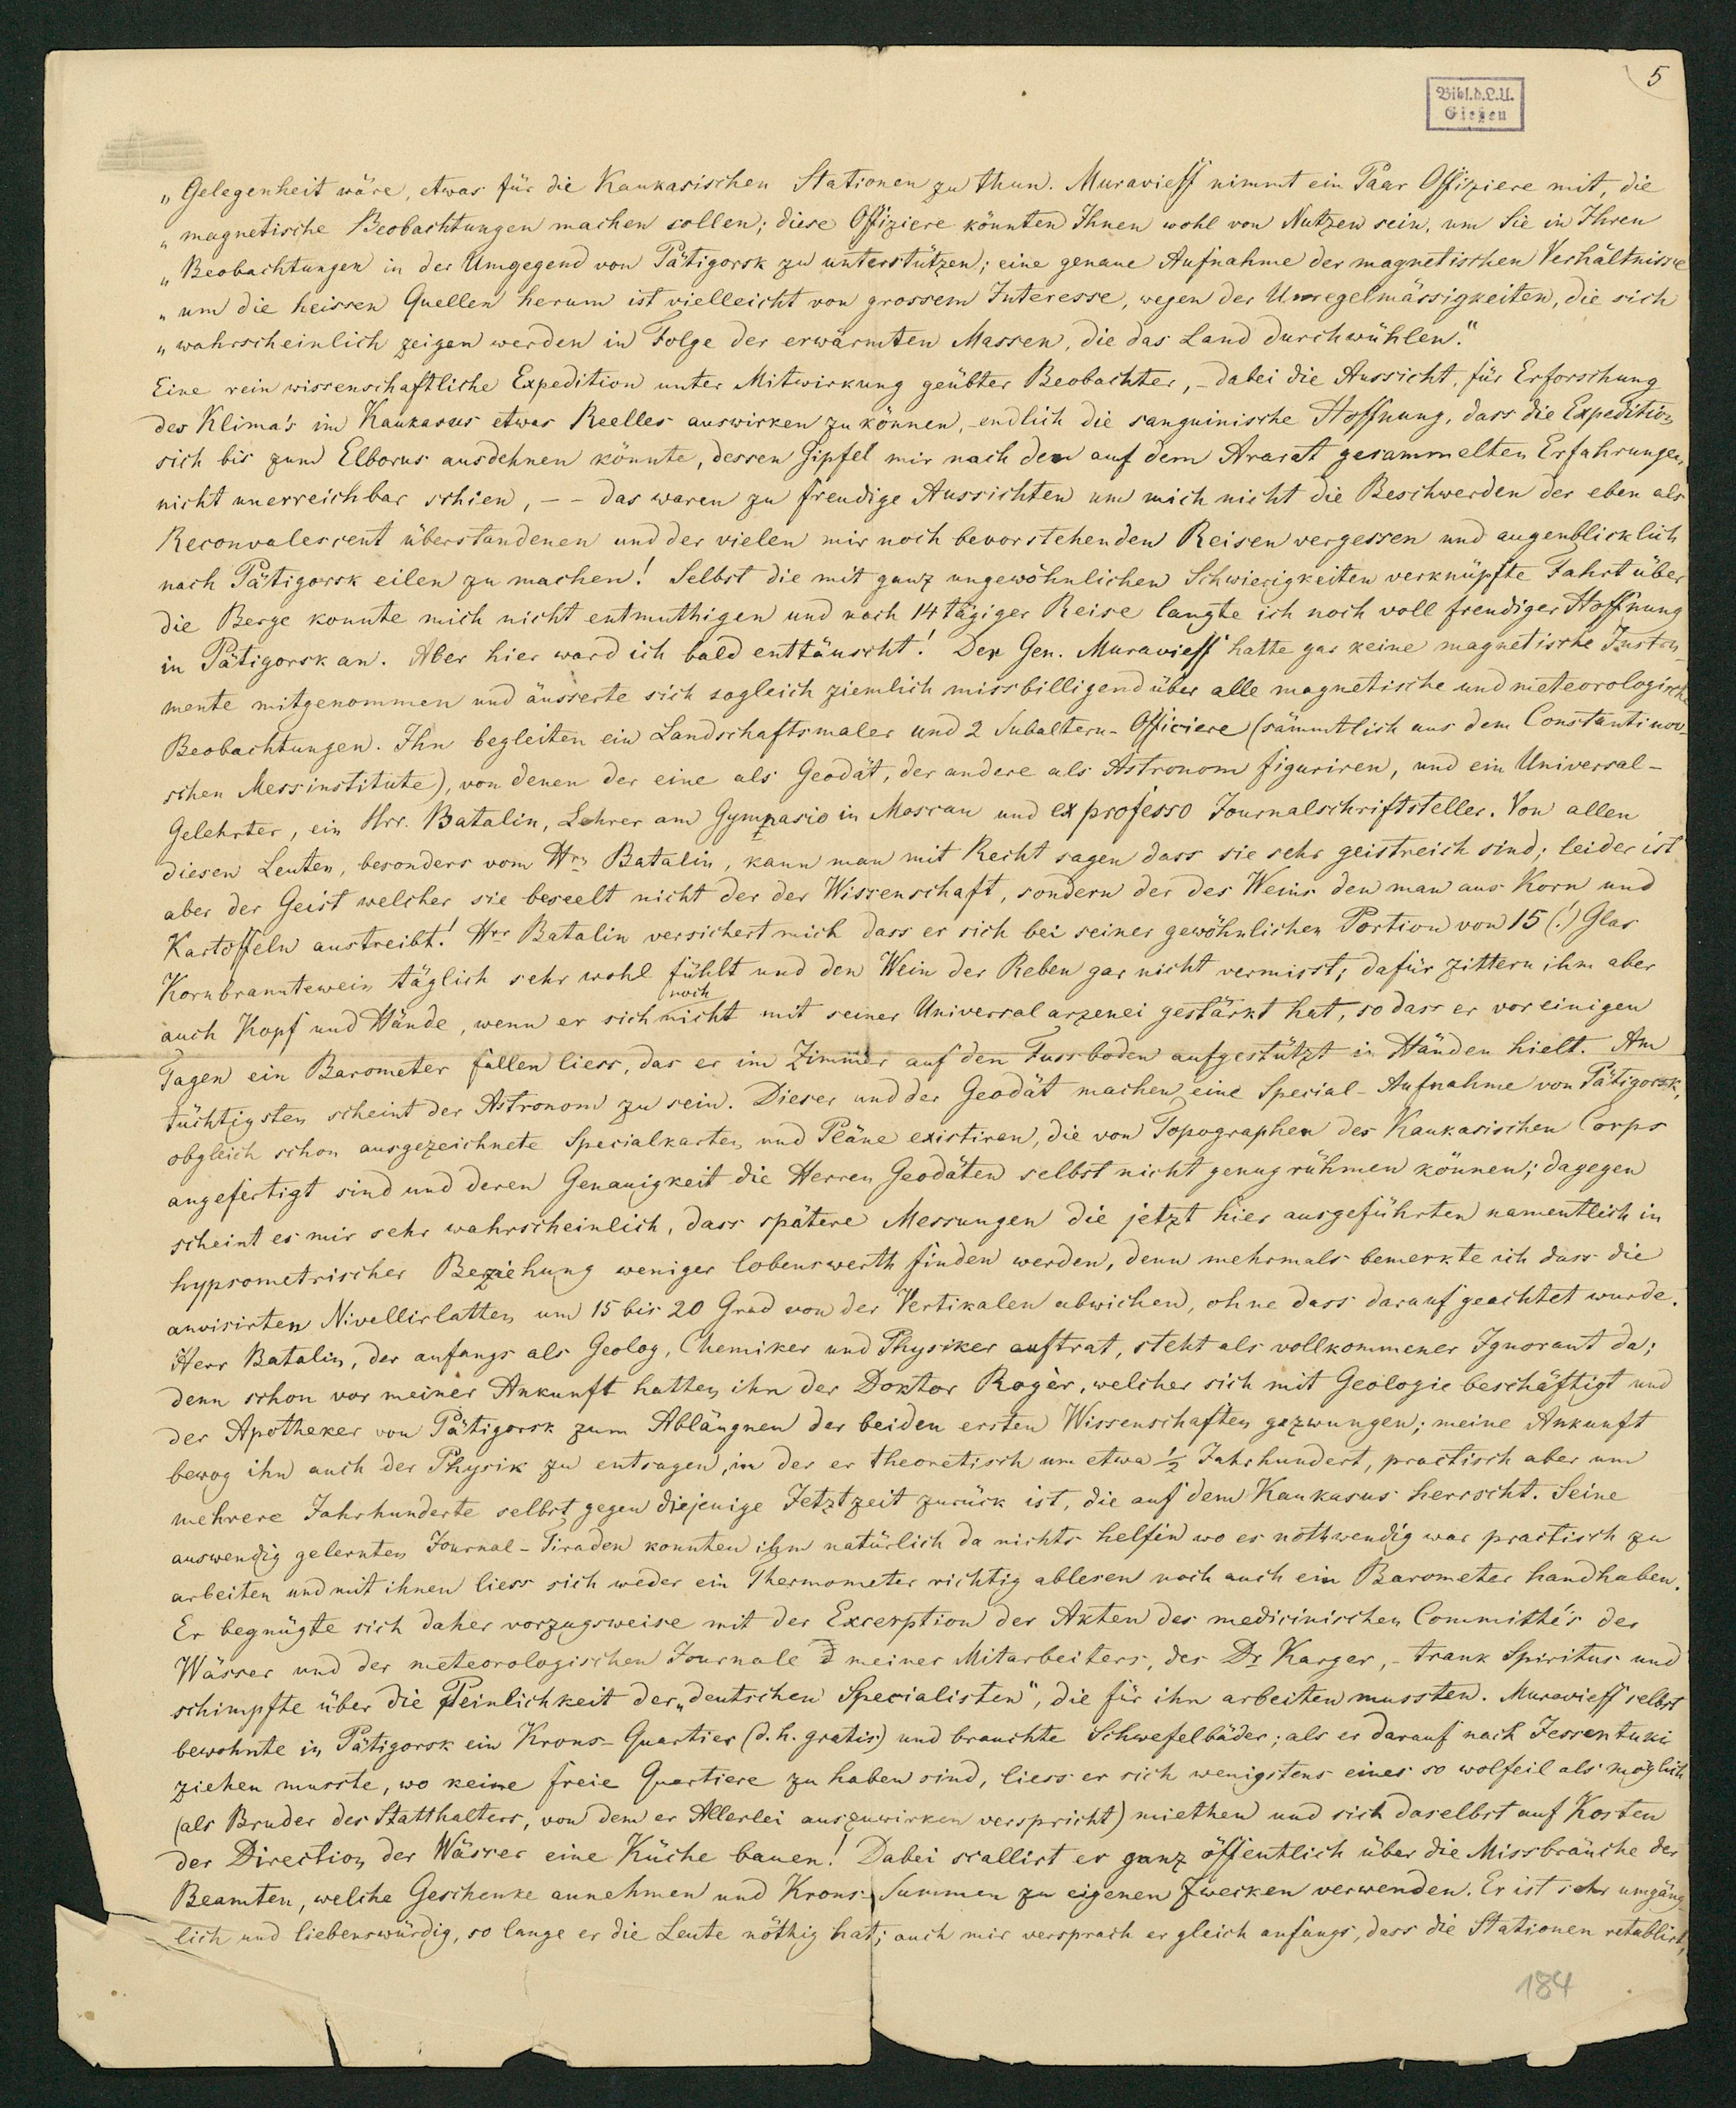 5
Bibl.d.L.U.
Gießen
„Gelegenheit wäre, etwas für die Kaukasischen Stationen zu thun. Muravieff nimmt ein Paar Offiziere mit, die
„magnetische Beobachtungen machen sollen; diese Offiziere könnten Ihnen wohl von Nutzen sein, um Sie in Ihren
„Beobachtungen in der Umgegend von Pätigorsk zu unterstützen; eine genaue Aufnahme der magnetischen Verhältnisse
„um die heissen Quellen herum ist vielleicht von grossem Interesse, wegen der Unregelmässigkeiten, die sich
„wahrscheinlich zeigen werden in Folge der erwärmten Massen, die das Land durchwühlen."
Eine rein wissenschaftliche Expedition unter Mitwirkung geübter Beobachter, - dabei die Aussicht, für Erforschung
des Klima's im Kaukasus etwas Reelles auswirken zu können, - endlich die sanguinische Hoffnung, dass die Expedition
sich bis zum Elborus ausdehnen könnte, dessen Gipfel mir nach den auf dem Ararat gesammelten Erfahrungen
nicht unerreichbar schien, - - das waren zu freudige Aussichten um mich nicht die Beschwerden der eben als
Reconvalescent überstandenen und der vielen mir noch bevorstehenden Reisen vergessen und augenblicklich
nach Pätigorsk eilen zu machen! Selbst die mit ganz ungewöhnlichen Schwierigkeiten verknüpfte Fahrt über
die Berge konnte mich nicht entmuthigen und nach 14 tägiger Reise langte ich noch voll freudiger Hoffnung
in Pätigorsk an. Aber hier ward ich bald enttäuscht! Der Gen. Muravieff hatte gar keine magnetische Instru-
mente mitgenommen und äusserte sich sogleich ziemlich missbilligend über alle magnetische und meteorologische
Beobachtungen. Ihn begleiten ein Landschaftsmaler und 2 Subaltern-Officiere (sämmtlich aus dem Constantinow-
schen Messinstitute), von denen der eine als Geodät, der andere als Astronom figuriren, und ein Universal-
Gelehrter, ein Hrr. Batalin, Lehrer am Gymnasio in Moscau und ex professo Journalschriftsteller. Von allen
diesen Leuten, besonders vom Hrn Batalin, kann man mit Recht sagen dass sie sehr geistreich sind; leider ist
aber der Geist welcher sie beseelt nicht der der Wissenschaft, sondern der des Weins den man aus Korn und
Kartoffeln austreibt! Hrr Batalin versichert mich dass er sich bei seiner gewöhnlichen Portion von 15 (!) Glas
Kornbranntewein täglich sehr wohl fühlt und den Wein der Reben gar nicht vermisst; dafür zittern ihm aber
auch Kopf und Hände, wenn er sich noch nicht mit seiner Universalarzenei gestärkt hat, so dass er vor einigen
Tagen ein Barometer fallen liess, das er im Zimmer auf den Fussboden aufgestützt in Händen hielt. Am
tüchtigsten scheint der Astronom zu sein. Dieser und der Geodät machen eine Special-Aufnahme von Pätigorsk,
obgleich schon ausgezeichnete Specialkarten und Pläne existiren, die von Topographen des Kaukasischen Corps
angefertigt sind und deren Genauigkeit die Herren Geodäten selbst nicht genug rühmen können; dagegen
scheint es mir sehr wahrscheinlich, dass spätere Messungen die jetzt hier ausgeführten namentlich in
hypsometrischer Beziehung weniger lobenswerth finden werden, denn mehrmals bemerkte ich dass die
anvisirten Nivellirlatten um 15 bis 20 Grad von der Vertikalen abwichen, ohne dass darauf geachtet wurde.
Herr Batalin, der anfangs als Geolog, Chemiker und Physiker auftrat, steht als vollkommener Ignorant da;
denn schon vor meiner Ankunft hatten ihn der Doktor Rogèr, welcher sich mit Geologie beschäftigt und
der Apotheker von Pätigorsk zum Abläugnen der beiden ersten Wissenschaften gezwungen; meine Ankunft
bewog ihn auch der Physik zu entsagen, in der er theoretisch um etwa ½ Jahrhundert, practisch aber um
mehrere Jahrhunderte selbst gegen diejenige Jetztzeit zurück ist, die auf dem Kaukasus herrscht. Seine
auswendig gelernten Journal-Tiraden konnten ihm natürlich da nichts helfen wo es nothwendig war practisch zu
arbeiten und mit ihnen liess sich weder ein Thermometer richtig ablesen noch auch ein Barometer handhaben.
Er begnügte sich daher vorzugsweise mit der Excerption der Akten des medicinischen Committé's der
Wässer und der meteorologischen Journale meines Mitarbeiters, des Dr Karger, - trank Spiritus und
schimpfte über die Peinlichkeit der „deutschen Specialisten", die für ihn arbeiten mussten. Muravieff selbst
bewohnte in Pätigorsk ein Krons-Quartier (d.h. gratis) und brauchte Schwefelbäder; als er darauf nach Jessentuki
ziehen musste, wo keine freie Quartiere zu haben sind, liess er sich wenigstens eines so wolfeil als möglich
(als Bruder des Statthalters, von dem er Allerlei auszuwirken verspricht) miethen und sich daselbst auf Kosten
der Direction der Wässer eine Küche bauen! Dabei scallirt er ganz öffentlich über die Missbräuche der
Beamten, welche Geschenke annehmen und Krons-Summen zu eigenen Zwecken verwenden. Er ist sehr umgäng-
lich und liebenswürdig, so lange er die Leute nöthig hat; auch mir versprach er gleich anfangs, dass die Stationen retablirt,
184